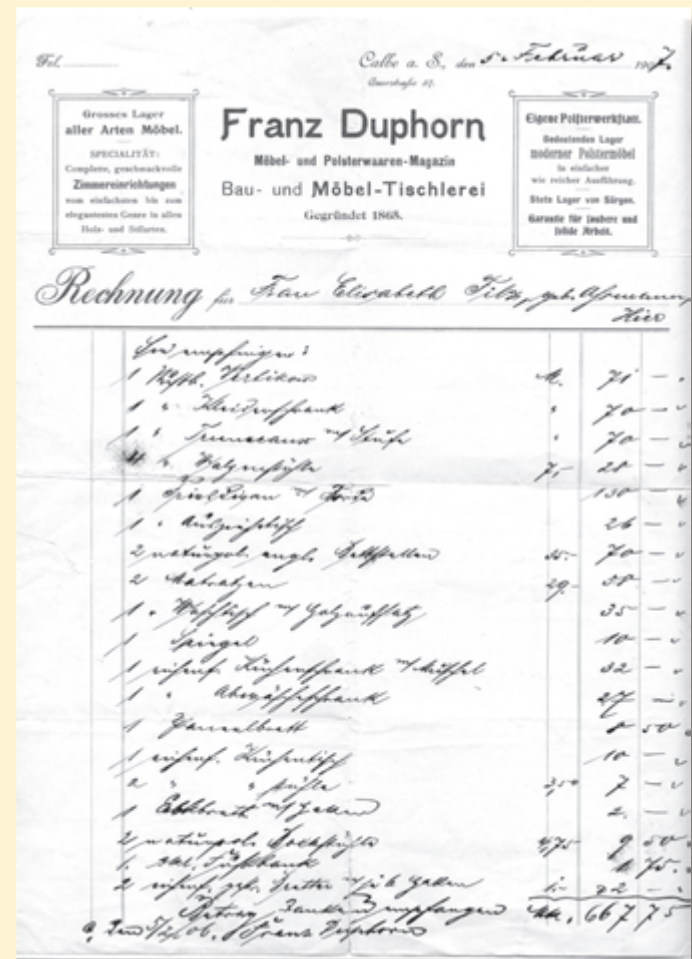 Tel.
Calbe a. S., den 5. Februar 1907.
Querstraße 17.
Grosses Lager
aller Arten Möbel.
SPECIALITÄT:
Complete, geschmackvolle
Zimmereinrichtungen
vom einfachsten bis zum
elegantesten Genre in allen
Holz- und Stilarten.
Franz Duphorn
Möbel- und Polsterwaaren-Magazin
Bau- und Möbel-Tischlerei
Gegründet 1865.
Eigene Polsterwerkstatt.
Bedeutendes Lager
moderner Polstermöbel
in einfacher
wie reicher Ausführung.
Stets Lager von Särgen.
Garantie für saubere und
solide Arbeit.
Rechnung für Frau Elisabeth
Hier
1 Vertikow M. 71 —
1 " Kleiderschrank " 70 —
1 " " 70 —
7,- 28 —
1 130 —
1 " Ausziehtisch 26 —
2 naturpol. engl. Bettstellen 35.- 70 —
2 Matratzen 29.- 58 —
1 " Waschtisch m/ Holzaufsatz 35 —
1 Spiegel 10 —
1 eichenf. Küchenschrank m/ 32 —
1 " 27 —
1 Paneelbrett 8 50
1 eichenf. Küchentisch 10 —
2 " " stühle 3,50 7 —
1 m/ Haken 2. —
2 naturpol. 4,75 9 50
1 1 75
2 eichenf. m/ je 6 Haken 1.- 2 —
Betrag dankend empfangen Mk. 667 75
Franz Duphorn